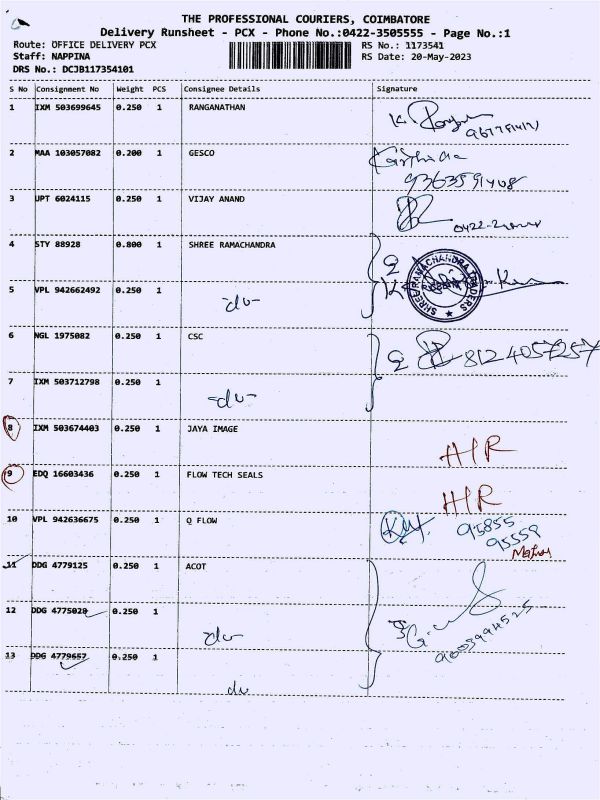 THE PROFESSIONAL COURIERS, COIMBATORE
Delivery Runsheet - PCX - Phone No.:0422-3505555 - Page No.:1
Route: OFFICE DELIVERY PCX
RS No.: 1173541
Staff: NAPPINA
RS Date: 20-May-2023
DRS No.: DCJB117354101
S No Consignment No Weight PCS Consignee Details Signature
1 IXM 503699645 0.250 1 RANGANATHAN
2 MAA 103057082 0.200 1 GESCO
9363591408
3 JPT 6024115 0.250 1 VIJAY ANAND
4 STY 88928 0.800 1 SHREE RAMACHANDRA
SHREE RAMACHANDRA TRADERS
5 VPL 942662492 0.250 1 -do-
6 NGL 1975082 0.250 1 CSC
8124057257
7 IXM 503712798 0.250 1 -do-
8 IXM 503674403 0.250 1 JAYA IMAGE
H/R
9 EDQ 16603436 0.250 1 FLOW TECH SEALS
H/R
10 VPL 942636675 0.250 1 Q FLOW
95855
95559
11 DDG 4779125 0.250 1 ACOT
12 DDG 4775028 0.250 1 do
13 DDG 4779657 0.250 1 do